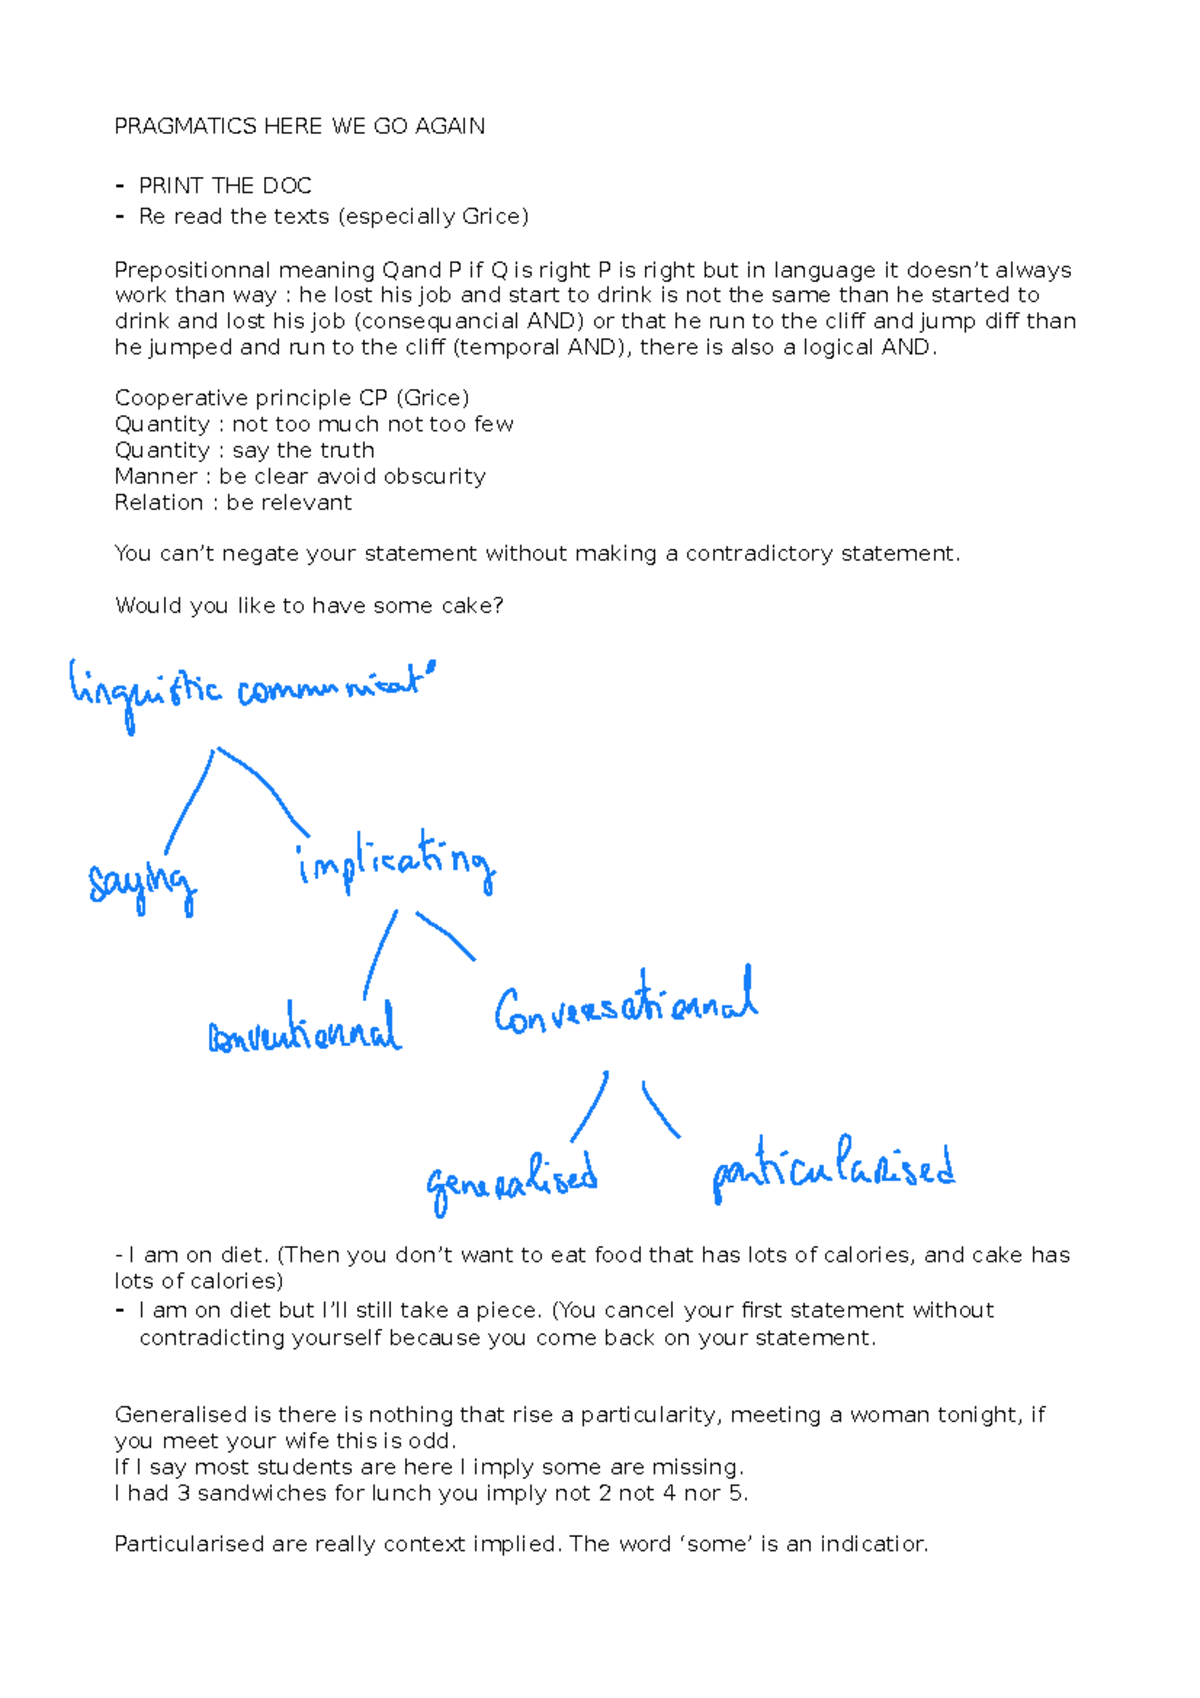 PRAGMATICS HERE WE GO AGAIN
- PRINT THE DOC
- Re read the texts (especially Grice)
Prepositionnal meaning Qand P if Q is right P is right but in language it doesn’t always
work than way : he lost his job and start to drink is not the same than he started to
drink and lost his job (consequancial AND) or that he run to the cliff and jump diff than
he jumped and run to the cliff (temporal AND), there is also a logical AND.
Cooperative principle CP (Grice)
Quantity : not too much not too few
Quantity : say the truth
Manner : be clear avoid obscurity
Relation : be relevant
You can’t negate your statement without making a contradictory statement.
Would you like to have some cake?
linguistic communicat°
saying
implicating
conventionnal
Conversationnal
generalised
particularised
- I am on diet. (Then you don’t want to eat food that has lots of calories, and cake has
lots of calories)
- I am on diet but I’ll still take a piece. (You cancel your first statement without
contradicting yourself because you come back on your statement.
Generalised is there is nothing that rise a particularity, meeting a woman tonight, if
you meet your wife this is odd.
If I say most students are here I imply some are missing.
I had 3 sandwiches for lunch you imply not 2 not 4 nor 5.
Particularised are really context implied. The word ‘some’ is an indicatior.